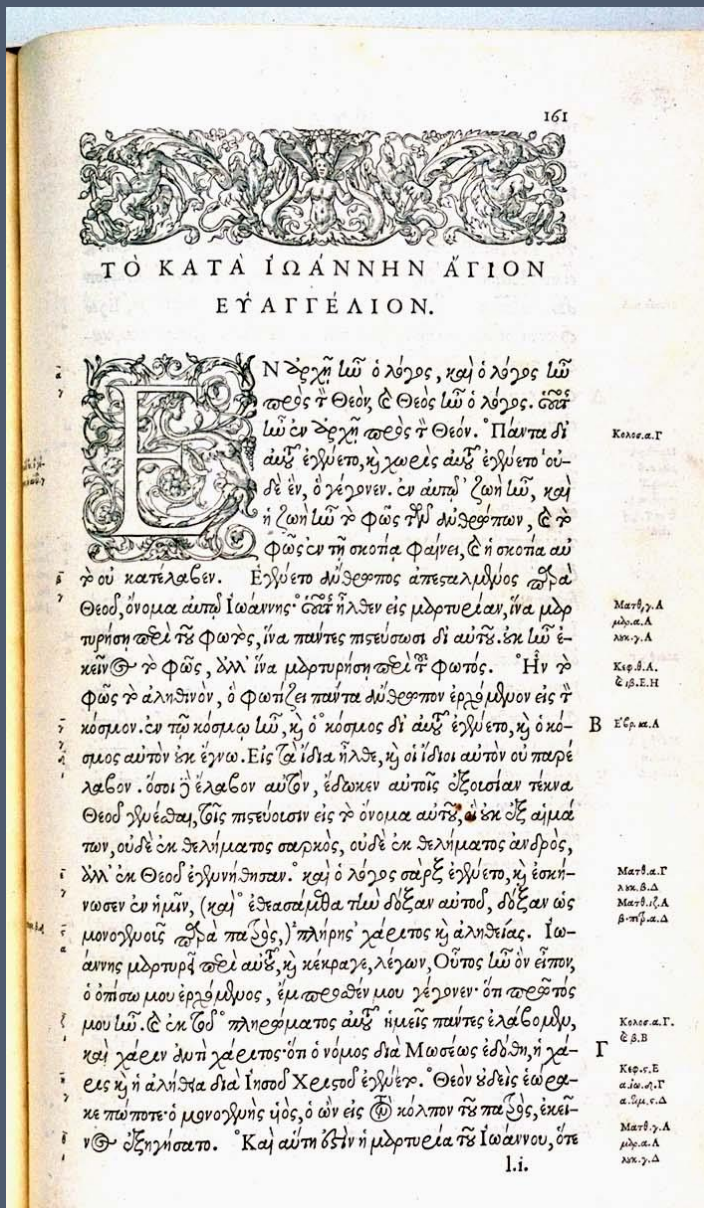 161
ΤΟ ΚΑΤΑ ΙΩΑΝΝΗΝ ἍΓΙΟΝ
ΕΥΑΓΓΕΛΙΟΝ.
ΕΝ ἀρχῇ ἦν ὁ λόγος, καὶ ὁ λόγος ἦν
πρὸς τὸν Θεὸν, καὶ Θεὸς ἦν ὁ λόγος. οὗτος
ἦν ἐν ἀρχῇ πρὸς τὸν Θεόν. Πάντα δι'
αὐτοῦ ἐγένετο, καὶ χωρὶς αὐτοῦ ἐγένετο οὐ-
δὲ ἓν, ὃ γέγονεν. ἐν αὐτῷ ζωὴ ἦν, καὶ
ἡ ζωὴ ἦν τὸ φῶς τῶν ἀνθρώπων, καὶ τὸ
φῶς ἐν τῇ σκοτίᾳ φαίνει, καὶ ἡ σκοτία αὐ
τὸ οὐ κατέλαβεν. Ἐγένετο ἄνθρωπος ἀπεσταλμένος παρὰ
Θεοῦ, ὄνομα αὐτῷ Ἰωάννης· οὗτος ἦλθεν εἰς μαρτυρίαν, ἵνα μαρ
τυρήσῃ περὶ τοῦ φωτὸς, ἵνα πάντες πιστεύσωσι δι' αὐτοῦ. οὐκ ἦν ἐ-
κεῖνος τὸ φῶς, ἀλλ' ἵνα μαρτυρήσῃ περὶ τοῦ φωτός. Ἦν τὸ
φῶς τὸ ἀληθινὸν, ὃ φωτίζει πάντα ἄνθρωπον ἐρχόμενον εἰς τὸν
κόσμον. ἐν τῷ κόσμῳ ἦν, καὶ ὁ κόσμος δι' αὐτοῦ ἐγένετο, καὶ ὁ κό-
σμος αὐτὸν οὐκ ἔγνω. Εἰς τὰ ἴδια ἦλθε, καὶ οἱ ἴδιοι αὐτὸν οὐ παρέ
λαβον. ὅσοι δὲ ἔλαβον αὐτὸν, ἔδωκεν αὐτοῖς ἐξουσίαν τέκνα
Θεοῦ γενέσθαι, τοῖς πιστεύουσιν εἰς τὸ ὄνομα αὐτοῦ, οἳ οὐκ ἐξ αἱμά
των, οὐδὲ ἐκ θελήματος σαρκὸς, οὐδὲ ἐκ θελήματος ἀνδρὸς,
ἀλλ' ἐκ Θεοῦ ἐγεννήθησαν. καὶ ὁ λόγος σὰρξ ἐγένετο, καὶ ἐσκή-
νωσεν ἐν ἡμῖν, (καὶ ἐθεασάμεθα τὴν δόξαν αὐτοῦ, δόξαν ὡς
μονογενοῦς παρὰ πατρὸς,) πλήρης χάριτος καὶ ἀληθείας. Ἰω-
άννης μαρτυρεῖ περὶ αὐτοῦ, καὶ κέκραγε, λέγων, Οὗτος ἦν ὃν εἶπον,
ὁ ὀπίσω μου ἐρχόμενος, ἔμπροσθέν μου γέγονεν· ὅτι πρῶτός
μου ἦν. καὶ ἐκ τοῦ πληρώματος αὐτοῦ ἡμεῖς πάντες ἐλάβομεν,
καὶ χάριν ἀντὶ χάριτος· ὅτι ὁ νόμος διὰ Μωσέως ἐδόθη, ἡ χά-
ρις καὶ ἡ ἀλήθεια διὰ Ἰησοῦ Χριστοῦ ἐγένετο. Θεὸν οὐδεὶς ἑώρα-
κε πώποτε· ὁ μονογενὴς υἱὸς, ὁ ὢν εἰς τὸν κόλπον τοῦ πατρὸς, ἐκεῖ-
νος ἐξηγήσατο. Καὶ αὕτη ἐστὶν ἡ μαρτυρία τοῦ Ἰωάννου, ὅτε
l.i.
Κολοσ.α.Γ
Ματθ.γ.Α
μαρ.α.Α
λυκ.γ.Α
Κεφ.θ.Α.
καὶ ιβ.Ε.Η
Β
Ἑβρ.ια.Α
Ματθ.α.Γ
λυκ.β.Δ
Ματθ.ιζ.Α
β.πέτρ.α.Δ
Κολοσ.α.Γ.
καὶ β.Β
Γ
Κεφ.ς.Ε
α.ἰω.δ.Γ
α.τιμ.ς.Δ
Ματθ.γ.Α
μαρ.α.Α
λυκ.γ.Δ